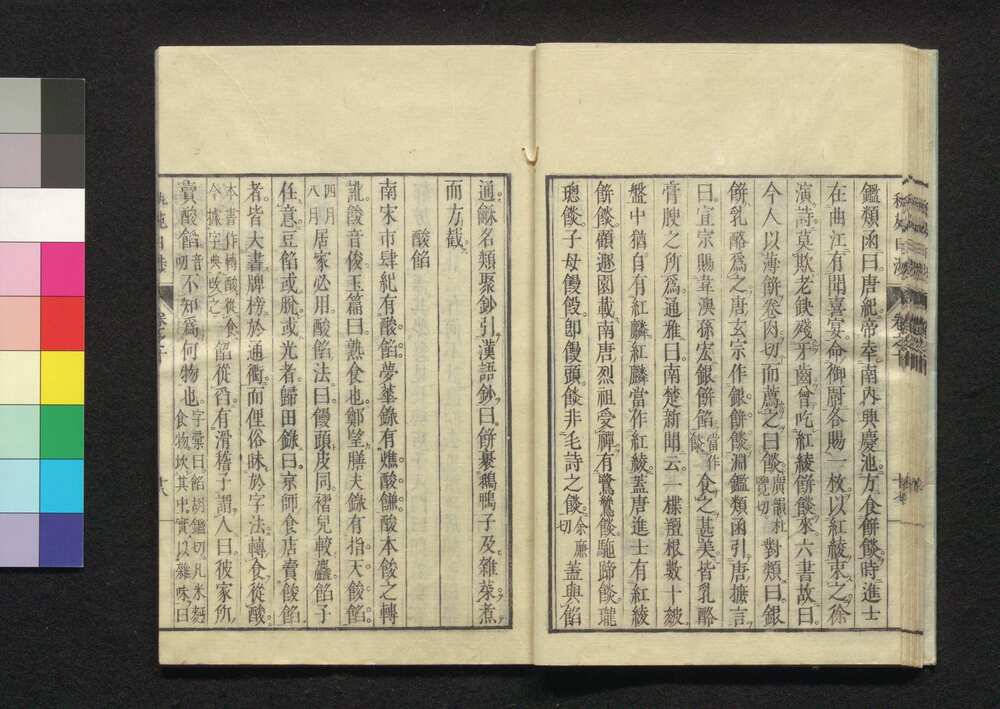 鑑類函曰唐紀帝幸南內興慶池方食餅餤時進士
在曲江有聞喜宴命御厨各賜一枚以紅綾束之徐
演詩莫欺老缺殘牙齒曾吃紅綾餅餤來六書故曰
今人以薄餅卷肉切而薦之曰餤廣韻杜覽切對類曰銀
餅乳酪爲之唐玄宗作銀餅餤淵鑑類函引唐摭言
曰宣宗賜韋澳孫宏銀餅餡當作餤食之甚美皆乳酪
膏腴之所爲通雅曰南楚新聞云一楪羶根數十皴
盤中猶自有紅麟紅麟當作紅綾蓋唐進士有紅綾
餅餤顧遯園載南唐烈祖受禪有鷺鷥餤駞蹄餤瓏
璁餤子母饅餤卽饅頭餤非毛詩之餤余廉切蓋與餡
通穌名類聚鈔引漢語鈔曰餅裹鵝鴨子及雜菜煮
而方截
酸餡
南宋市肆紀有酸餡夢華錄有燋酸饊酸本餕之轉
訛餕音俊玉篇曰熟食也鄭望膳夫錄有指天餕餡
四月八月居家必用酸餡法曰饅頭皮同褶兒較麤餡子
任意豆餡或脫或光者歸田錄曰京師食店賣餕餡
者皆大書牌榜於通衢而俚俗昧於字法轉食從酸
本書作轉酸從食今據字典改之餡從舀有滑稽子謂人曰彼家所
賣酸餡音叨不知爲何物也字彙曰餡胡鑑切凡米麪食物坎其中實以雜味曰